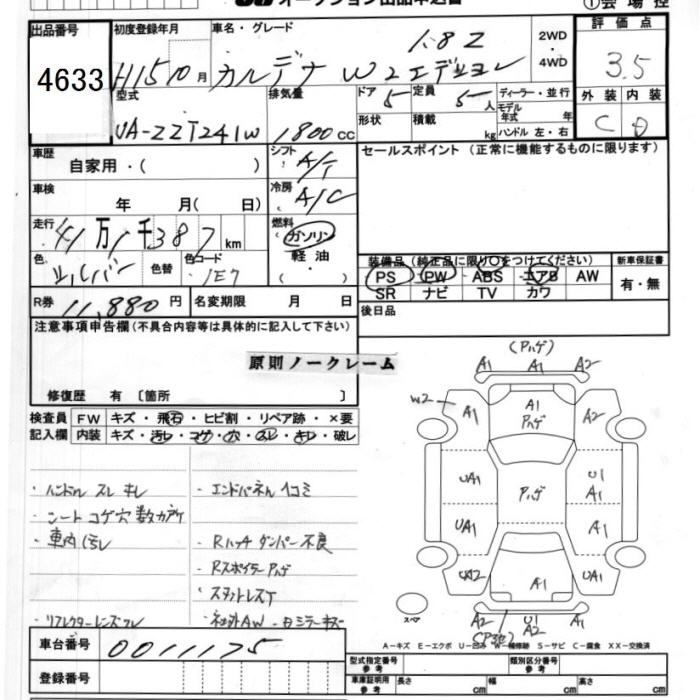 オークション出品申込書 ①会場控
出品番号 4633
初度登録年月 H15 10月
車名・グレード カルディナ 1.8Z W2エディション
2WD・4WD
評価点 3.5
外装 C 内装 D
型式 UA-ZZT241W
排気量 1800cc
ドア 5 定員 5人
形状 積載 kg
ディーラー・並行
モデル年式 年
ハンドル 左・右
車歴 自家用・( )
シフト A/T
セールスポイント(正常に機能するものに限ります)
車検 年 月( 日)
冷房 A/C
走行 41万1千387km
燃料 ガソリン 軽油 ( ・ )
色 シルバー 色替 色コード 1E7
装備品(純正品に限り○をつけてください)
PS PW ABS エアB AW
SR ナビ TV カワ
新車保証書 有・無
R券 11,880円 名変期限 月 日
後日品
注意事項申告欄(不具合内容等は具体的に記入して下さい)
原則ノークレーム
修復歴 有〔箇所 〕
検査員記入欄 FW キズ・飛石・ヒビ割・リペア跡・×要
内装 キズ・汚レ・コゲ・穴・スレ・キレ・破レ
・ハンドル スレ キレ
・シートコゲ穴数カ所
・車内汚レ
・リフレクターレンズワレ
・エンドパネル凹コミ
・Rハッチダンパー不良
・Rスポイラー Pハゲ
・スタットレスT
(Pハゲ)
A1 A1 A2
W2 A1 A1 Pハゲ A2
UA1 Pハゲ U1 A1
UA1 A1
UA2 A1 UA1
スペア
A2 U1 A2 A2
A−キズ E−エクボ U−凹み W−補修跡 S−サビ C−腐食 XX−交換済
車台番号 0011175
登録番号
型式指定番号 参考 類別区分番号 参考
車庫証明用 参考 長さ cm 幅 cm 高さ cm